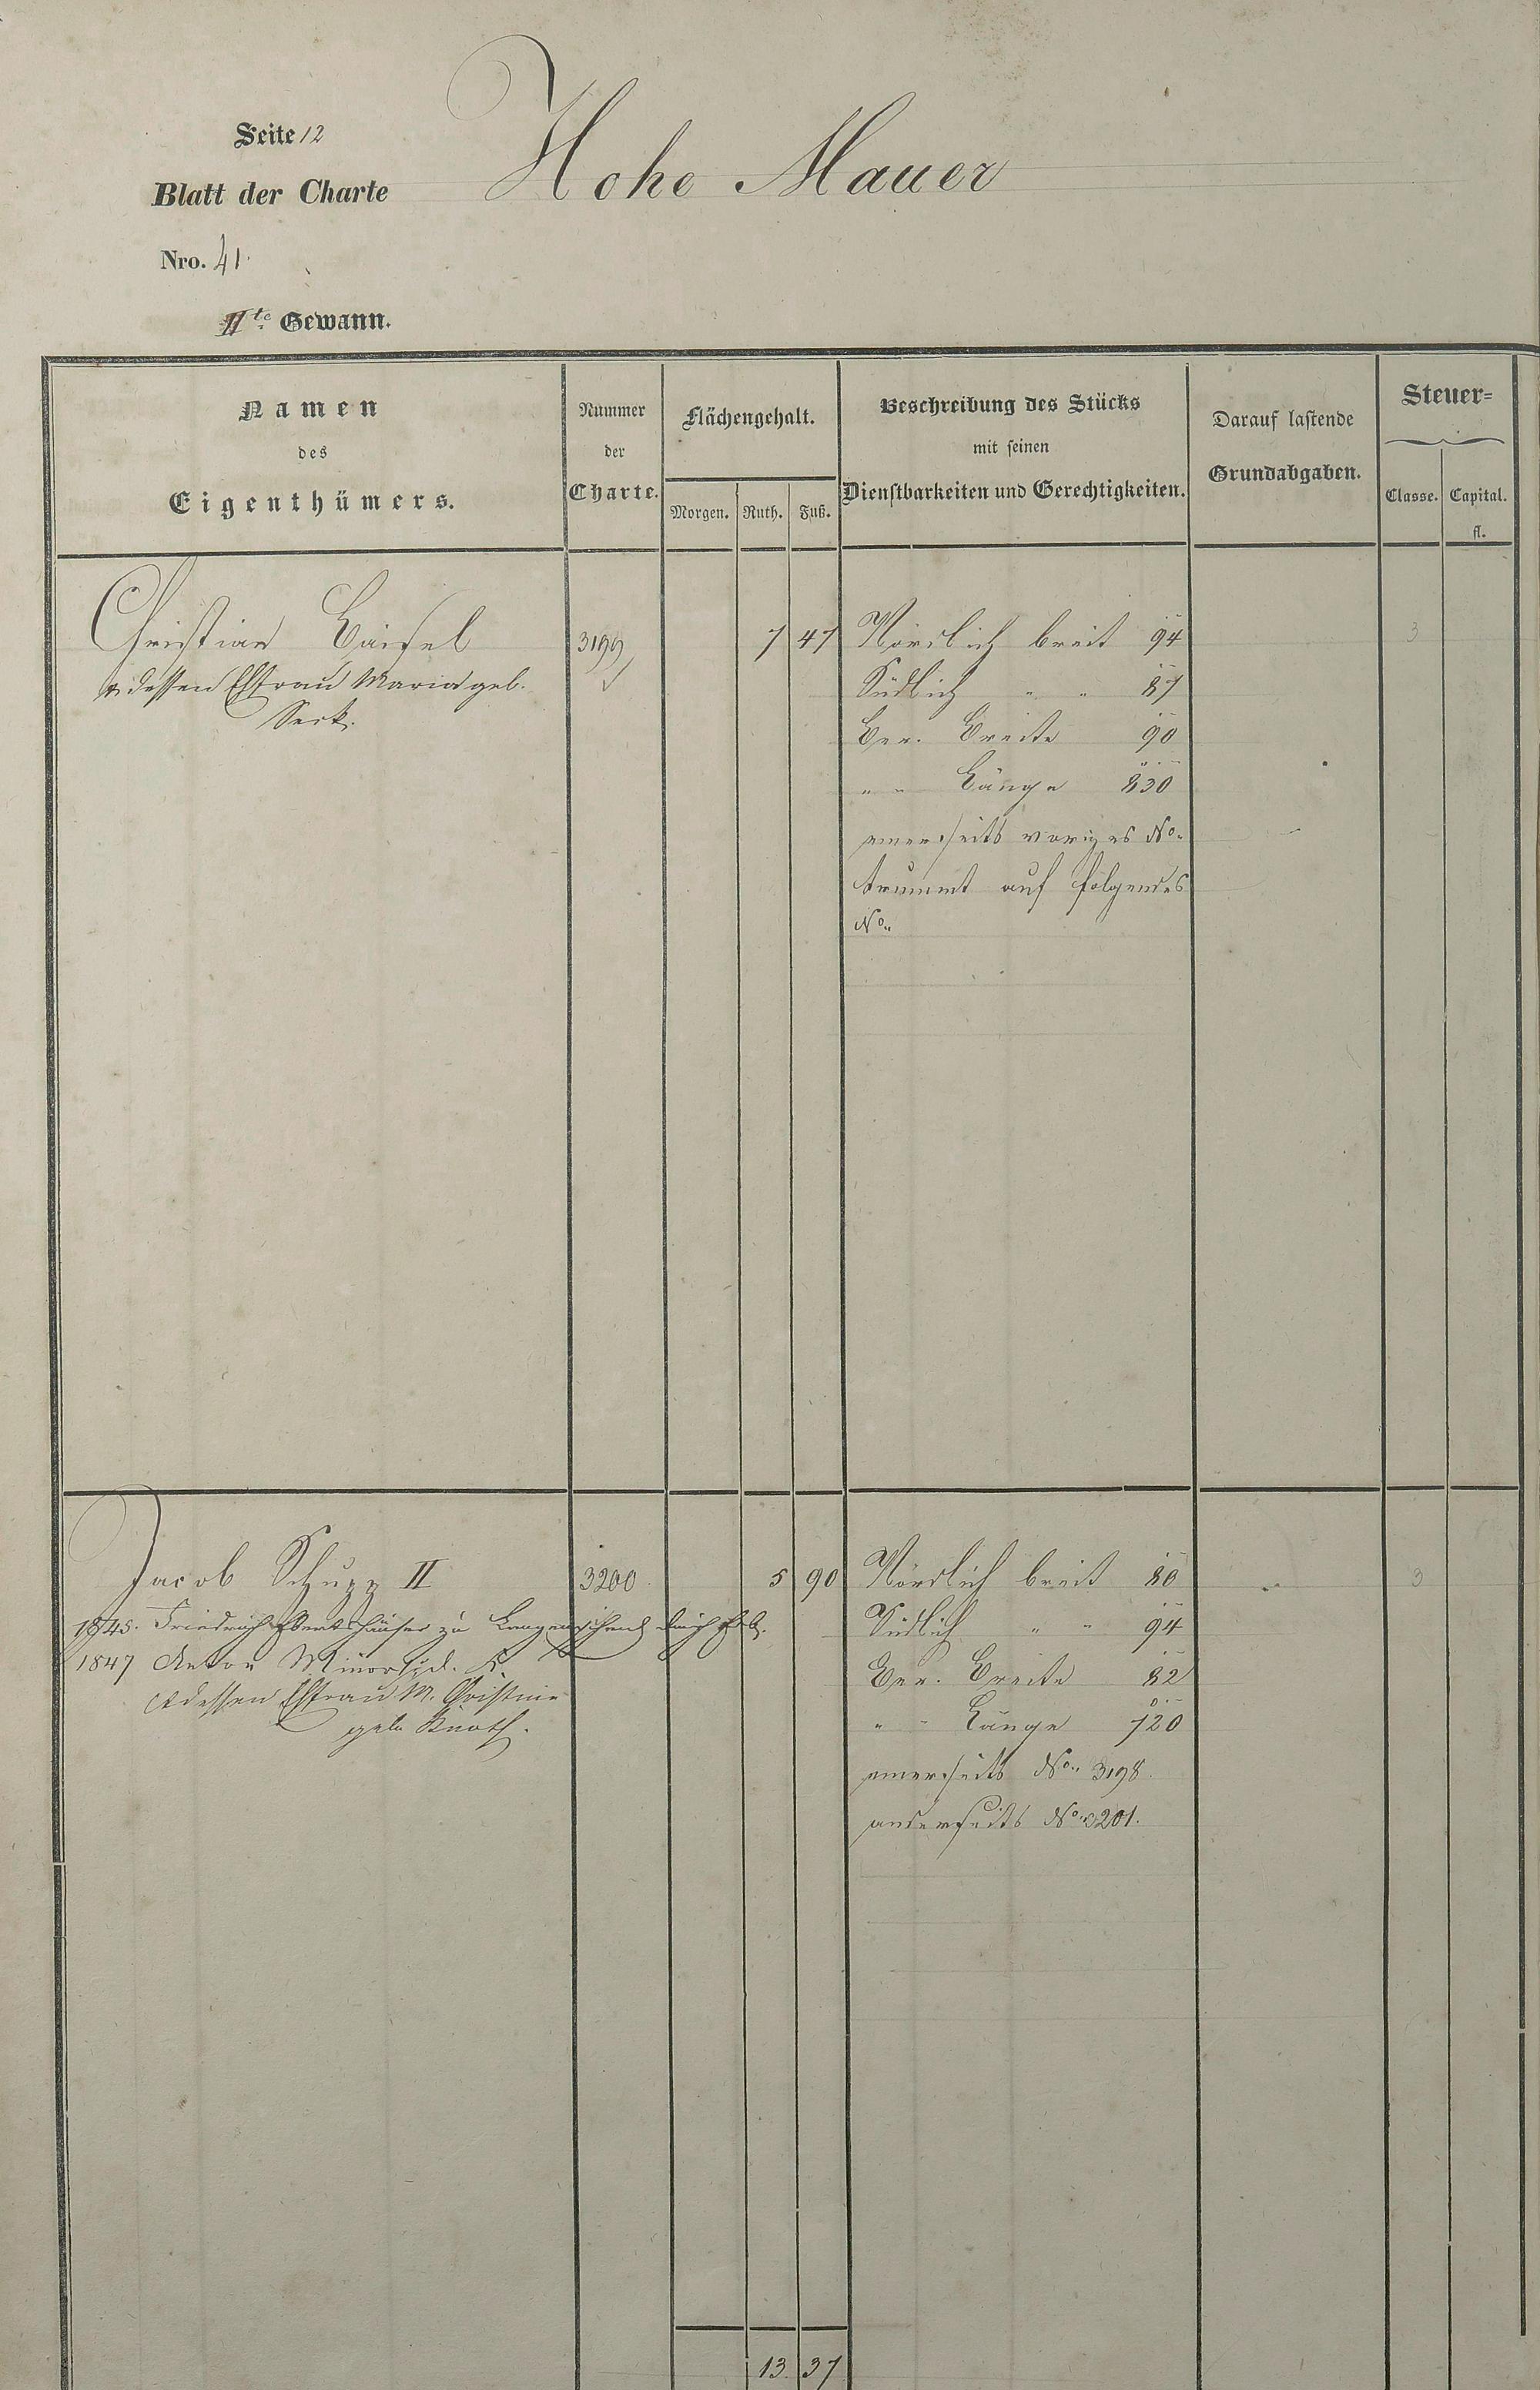 Seite 12
Hohe Mauer
Blatt der Charte
Nro. 41.
IIte Gewann.
Namen
des
Eigenthümers.
Nummer
der
Charte.
Flächengehalt.
Morgen. Ruth. Fuß.
Beschreibung des Stücks
mit seinen
Dienstbarkeiten und Gerechtigkeiten.
Darauf lastende
Grundabgaben.
Steuer-
Classe. Capital.
fl.
Christian 3199 7 47 Nördlich breit 94 3
dessen Ehfrau Maria geb. Südlich " " 87
Ber. Breite 90
" " Länge 830
einerseits voriges No.
trummt auf folgendes
No.
Jacob Schupp II 3200 5 90 Nördlich breit 80 3
1845. Friedrich zu durch Südlich " " 94
1847 Anton Ber. Breite 82
dessen Ehfrau M. Christine " " Länge 720
geb. Knoth.
einerseits No. 3198.
anderseits No. 3201.
13 37